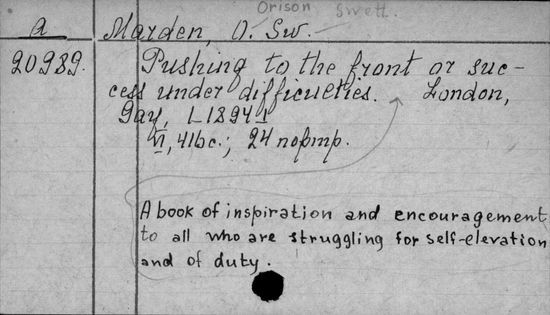 Orison Swett.
a Marden, O. Sw.
20989. Pushing to the front or suc-
cess under difficulties. London,
Gay, [1894]
VI, 416 c.; 24 портр.
A book of inspiration and encouragement
to all who are struggling for self-elevation
and of duty.